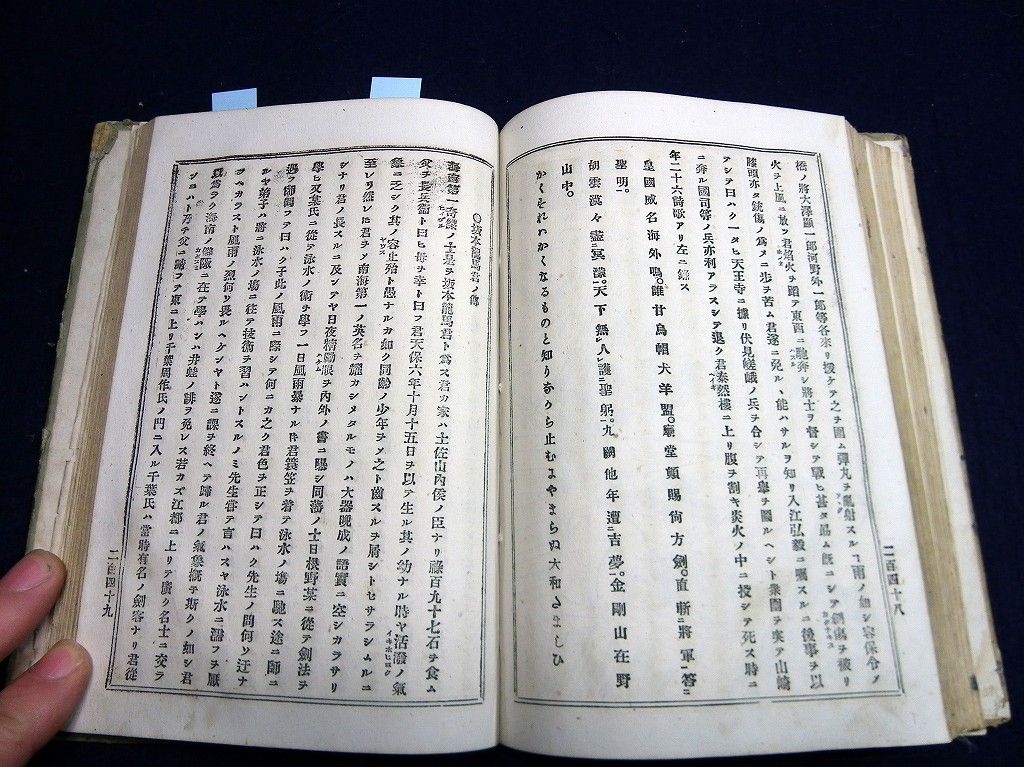 二百四十八
橋ノ將大澤顯一郎河野外一郎等各來リ援ケ之ヲ圍ム彈丸ヲ亂射スルヿ雨ノ如シ容保令ノ
火ヲ上風ニ放フ君焰火ヲ踏テ東西ニ馳奔シ將士ヲ督シテ戰ヒ甚タ昜ム既ニシテ劍傷ヲ被リ
膝頭亦タ銃傷ノ爲メニ步ヲ苦ム君遂ニ免ル丶能ハサルヲ知リ入江弘毅ニ囑スルニ後事ヲ以
テシテ曰ハク一タヒ天王寺ニ據リ伏見嵯峨ノ兵ヲ合シテ再擧ヲ圖ルヘシト衆圍ヲ突テ山崎
ニ奔ル國司等ノ兵亦利アラスシテ退ク君泰然樓ニ上リ腹ヲ割キ炎火ノ中ニ投シテ死ス時ニ
年二十六詩歌アリ左ニ錄ス
皇國威名海外鳴。誰甘烏帽犬羊盟。廟堂願賜尙方劍。直斬將軍答
聖明。
胡雲漠々盡冥濛。天下無人護聖躬。九闕他年遭吉夢。金剛山在野
山中。
かくそれわかくなるものと知りなから止むよやまらぬ大和たましひ
○坂本龍馬君ノ傳
海南第一奇傑ノ士是ヲ坂本龍馬君ト爲ス君カ家ハ土佐山內侯ノ臣ナリ祿百九十七石ヲ食ム
父ヲ長兵衞ト曰ヒ母ヲ幸ト曰フ君天保六年十月十五日ヲ以テ生ル其ノ幼ナル時ヤ活潑ノ氣
象ニ乏シク其ノ容止殆ト愚ナルカ如ク同齡ノ少年ヲシ之ト齒スルヲ屑シトセサラシムルニ
至レリ然レ𪜈君ヲノ南海第一ノ英名ヲ耀カシメタルモノハ大器晩成ノ語實ニ空シカラサリ
シナリ君ノ長スルニ及シテヤ日夜精勵眼ヲ內外ノ書ニ曝シ同藩ノ士日根野某ニ從テ劍法ヲ
學ヒ又某氏ニ從テ泳水ノ術ヲ學フ一日風雨暴ナル𪜈君簑笠ヲ着テ泳水ノ場ニ馳ス途ニ師ニ
遇フ師問フテ曰ハク子此ノ風雨ニ際シテ何ニカ之ク君色ヲ正シテ曰ハク先生ノ問何ソ迂ナ
ルヤ弟子ハ將ニ泳水ノ場ニ往テ技術ヲ習ハントスルノミ先生嘗テ言ハスヤ泳水ニ濡フヲ厭
フヘカラスト風雨ノ烈何ソ畏ルヘケンヤト遂ニ課ヲ終ヘテ歸ル君ノ氣象槪子斯クノ如シ君
以爲ラク海南ノ僻陬ニ在テ學ハンハ井蛙ノ誹ヲ免レス若カズ江都ニ上リテ廣ク名士ニ交ラ
ンニハト乃チ父ニ請フテ東ニ上リ千葉周作氏ノ門ニ入ル千葉氏ハ當時有名ノ劍客ナリ君從
二百四十九